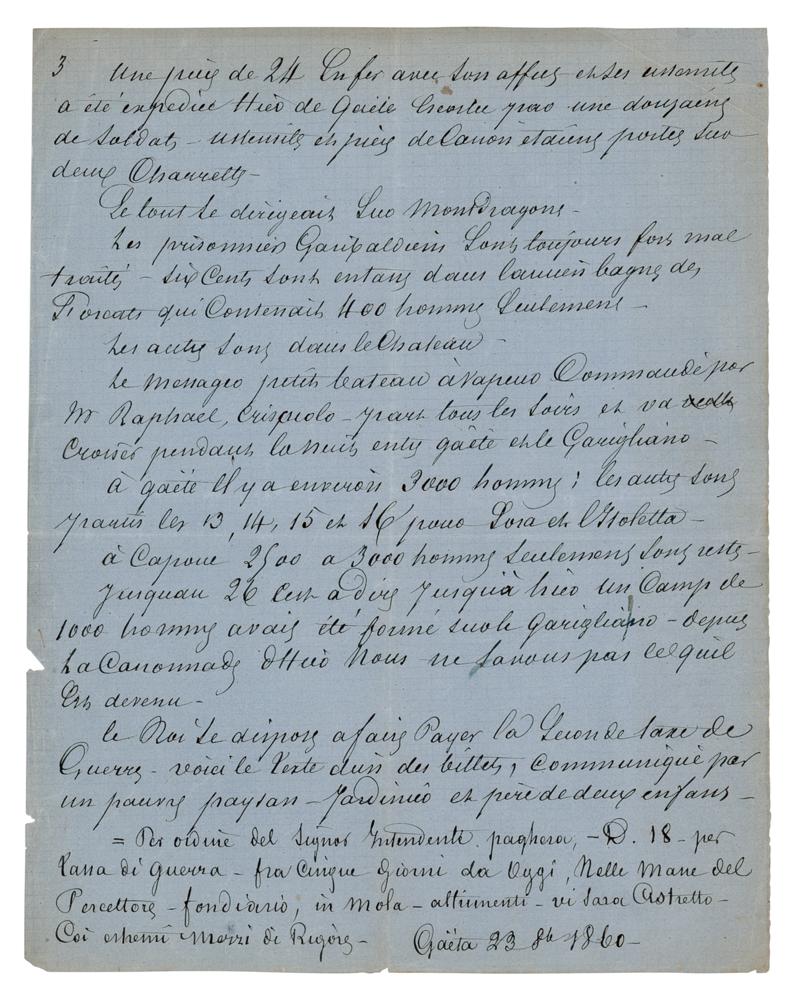 3 Une pièce de 24 En fer avec son affus et ses ustensils
a été expediée Hier de Gaëte Escortee par une douzaine
de Soldats - ustensils et pièce de Canon etaiens portés Sur
deux Charrettes -
Le tout se dirigeait Sur Mondragone -
Les prisonniers Garibaldiens Sont toujours fort mal
traités - Six Cents sont entassés dans l'ancien bagne des
Forcats qui Contenait 400 hommes Seulement -
Les autres Sont dans le Chateau -
Le Messager petit bateau à Vapeur Commandé par
Mr Raphael, Crispolo - part tous les soirs et va
Croiser pendant la nuit entre gaëte et le Garigliano -
à gaëte Il y a environ 3000 hommes ; les autres sont
partis les 13, 14, 15 et 16 pour Sora et l'Isoletta -
à Capoue 2500 a 3000 hommes Seulement Sont restés -
Jusquau 26 Cest a dire Jusqu'à hier un Camp de
1000 hommes avait été formé sur le Garigliano - depuis
La Canonnade d'Hier Nous ne savons pas ce quil
Est devenu -
le Roi Se dispose a faire Payer la Seconde taxe de
Guerre - voici le Texte d'un des billets, communiqué par
un pauvre paysan - Jardinier et père de deux enfans -
= Per ordine del Signor Intendente paghera, - D. 18 - per
Tassa di Guerra - fra Cinque Giorni da Oggi, Nelle Mane del
Percettore - fondiario, in Mola - altrimenti - vi Sara Astretto -
Coi estremi Mezzi di Rigore - Gaëta 23 8b 1860 -